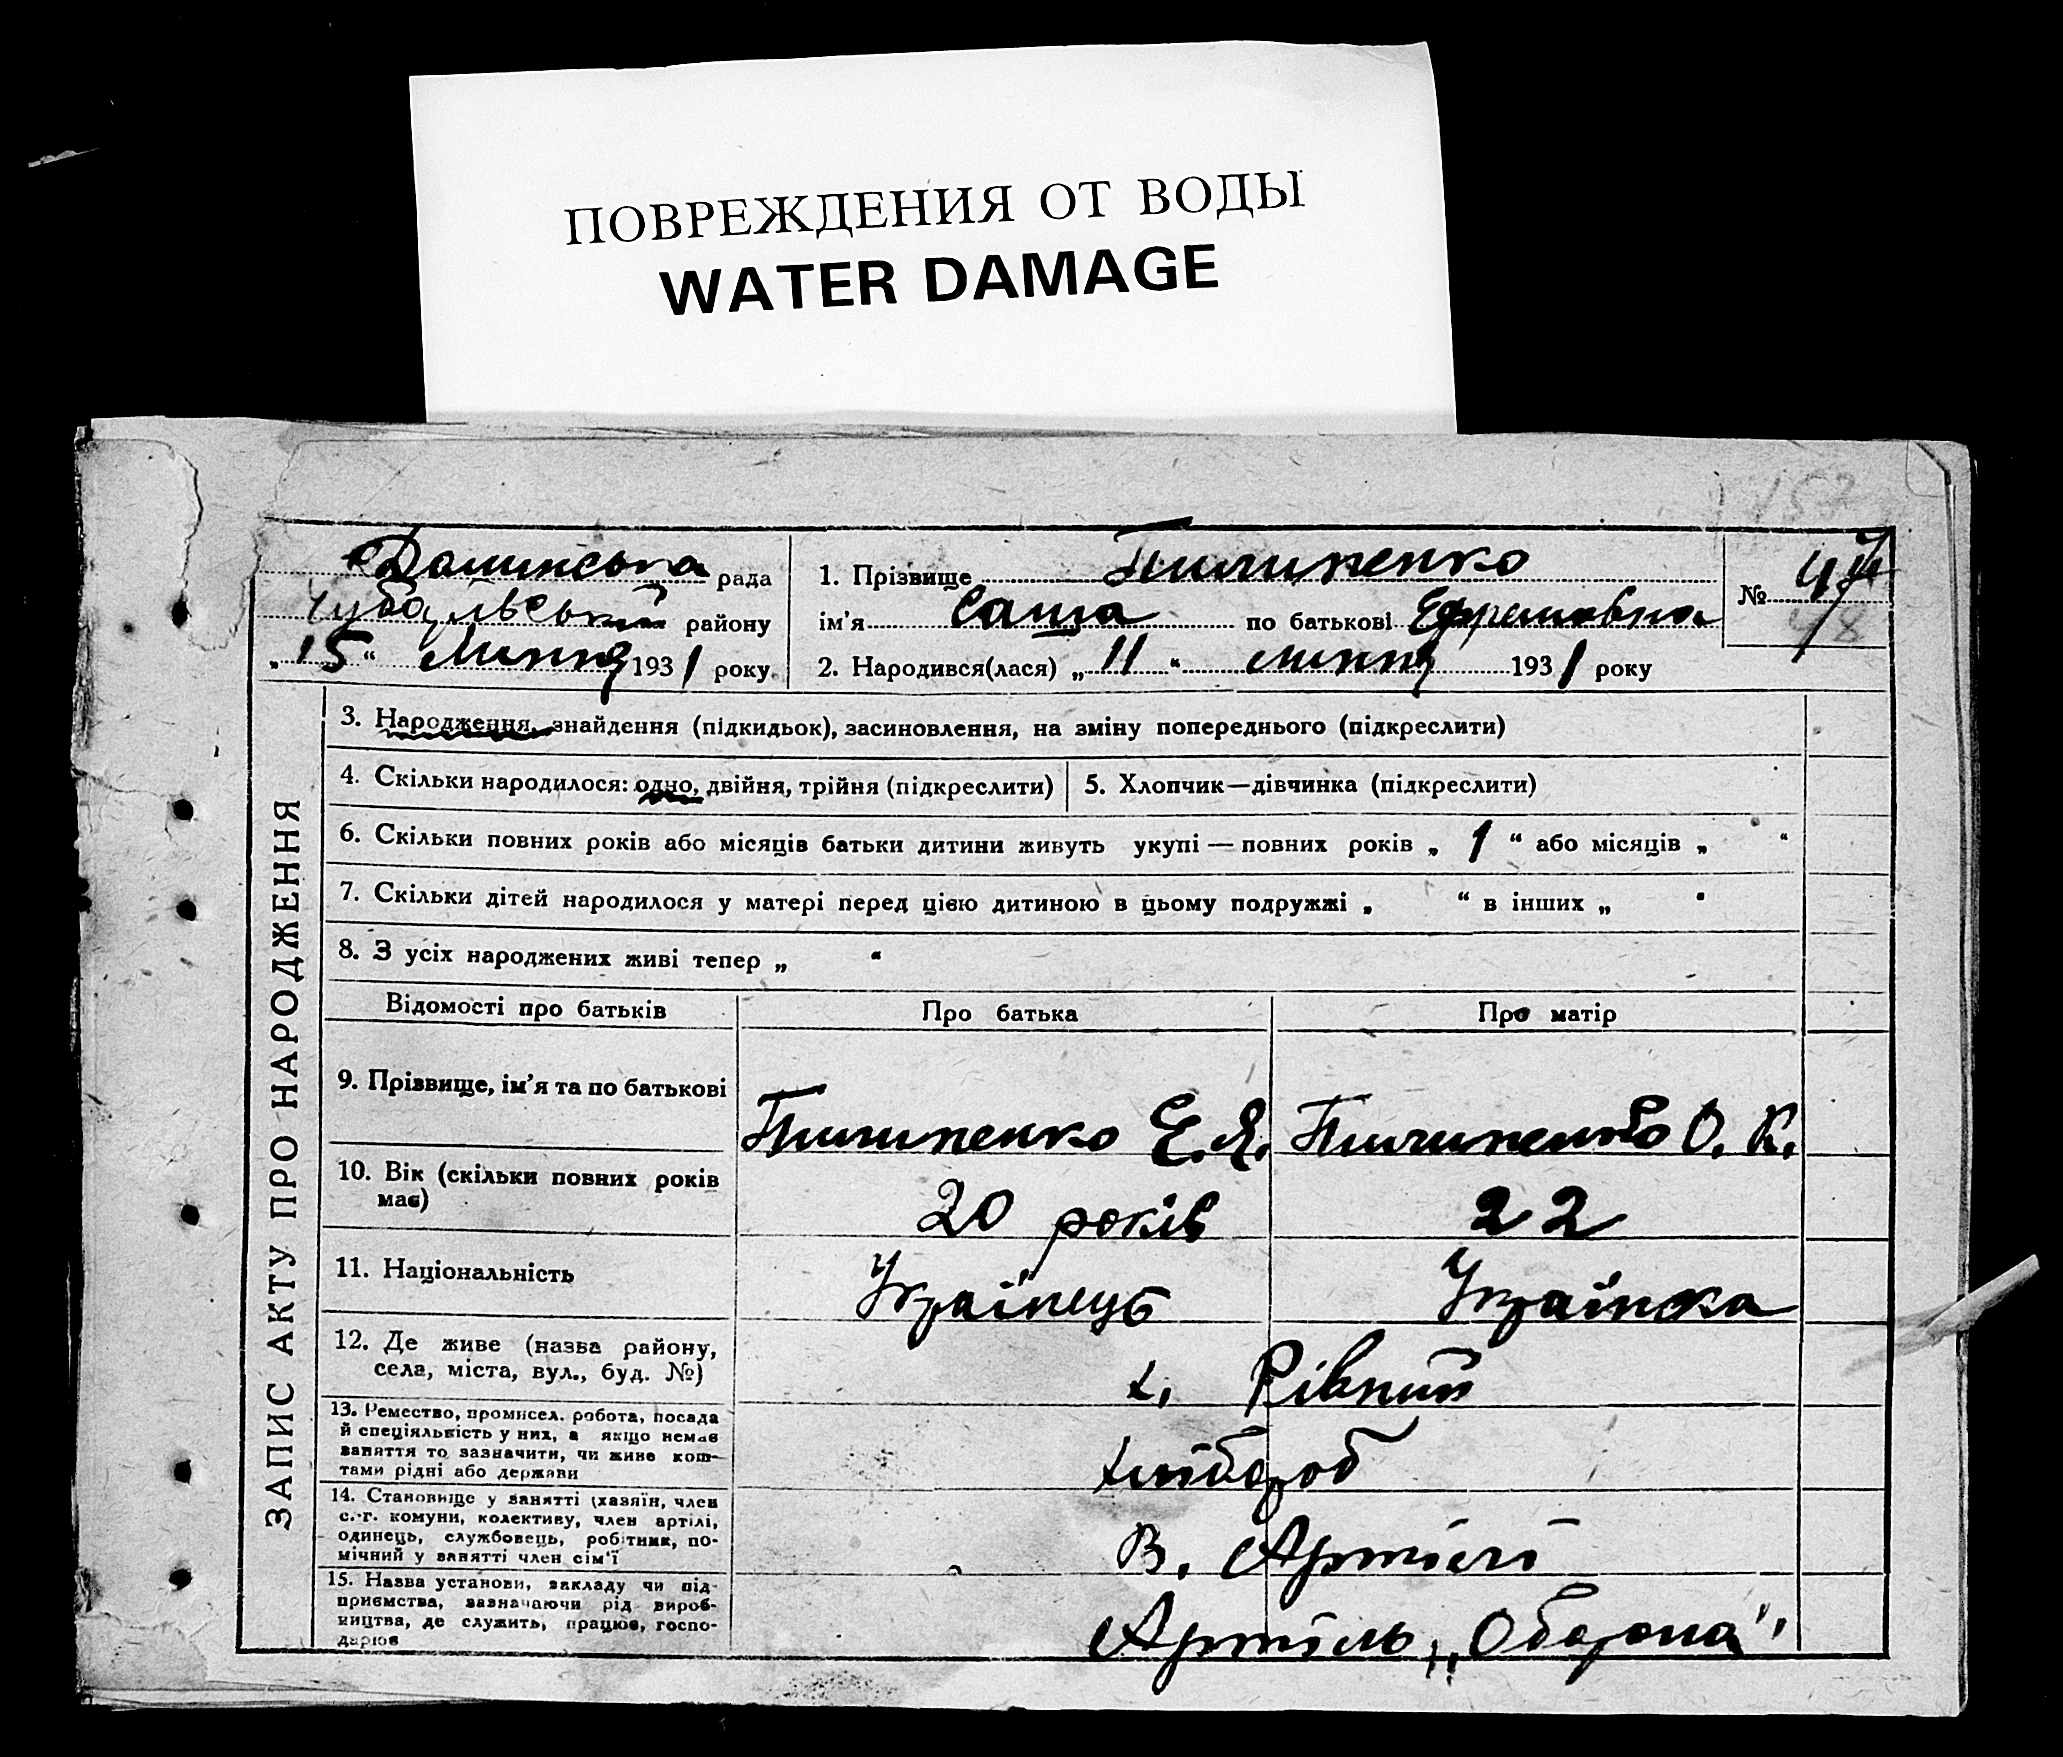 ПОВРЕЖДЕНИЯ ОТ ВОДЫ
WATER DAMAGE
Долинська рада
Чубарьський району
„15“ Липня 1931 року
1. Прізвище Пилипенко
ім'я Саша по батькові Ефремовна
2. Народився(лася) „11“ липня 1931 року
№
ЗАПИС АКТУ ПРО НАРОДЖЕННЯ
3. Народження, знайдення (підкидьок), засиновлення, на зміну попереднього (підкреслити)
4. Скільки народилося: одно, двійня, трійня (підкреслити)
5. Хлопчик—дівчинка (підкреслити)
6. Скільки повних років або місяців батьки дитини живуть укупі — повних років „ 1 “ або місяців „ “
7. Скільки дітей народилося у матері перед цією дитиною в цьому подружжі „ “ в інших „ “
8. З усіх народжених живі тепер „ “
Відомості про батьків Про батька Про матір
9. Прізвище, ім'я та по батькові
Пилипенко Е.Я. Пилипенко О. К.
10. Вік (скільки повних років
має)
20 років 22
11. Національність
Українець Українка
12. Де живе (назва району,
села, міста, вул., буд. №)
х. Рівний
13. Ремество, промисел. робота, посада
й спеціяльність у них, а якщо немає
заняття то зазначити, чи живе кош-
тами рідні або держави
хлібороб
14. Становище у занятті (хазяїн, член
с.-г. комуни, колективу, член артілі,
одинець, службовець, робітник, по-
мічний у занятті член сім'ї
В. Артілі
15. Назва установи, закладу чи під-
приємства, зазначаючи рід вироб-
ництва, де служить, працює, госпо-
дарює
Артіль „Оборона"